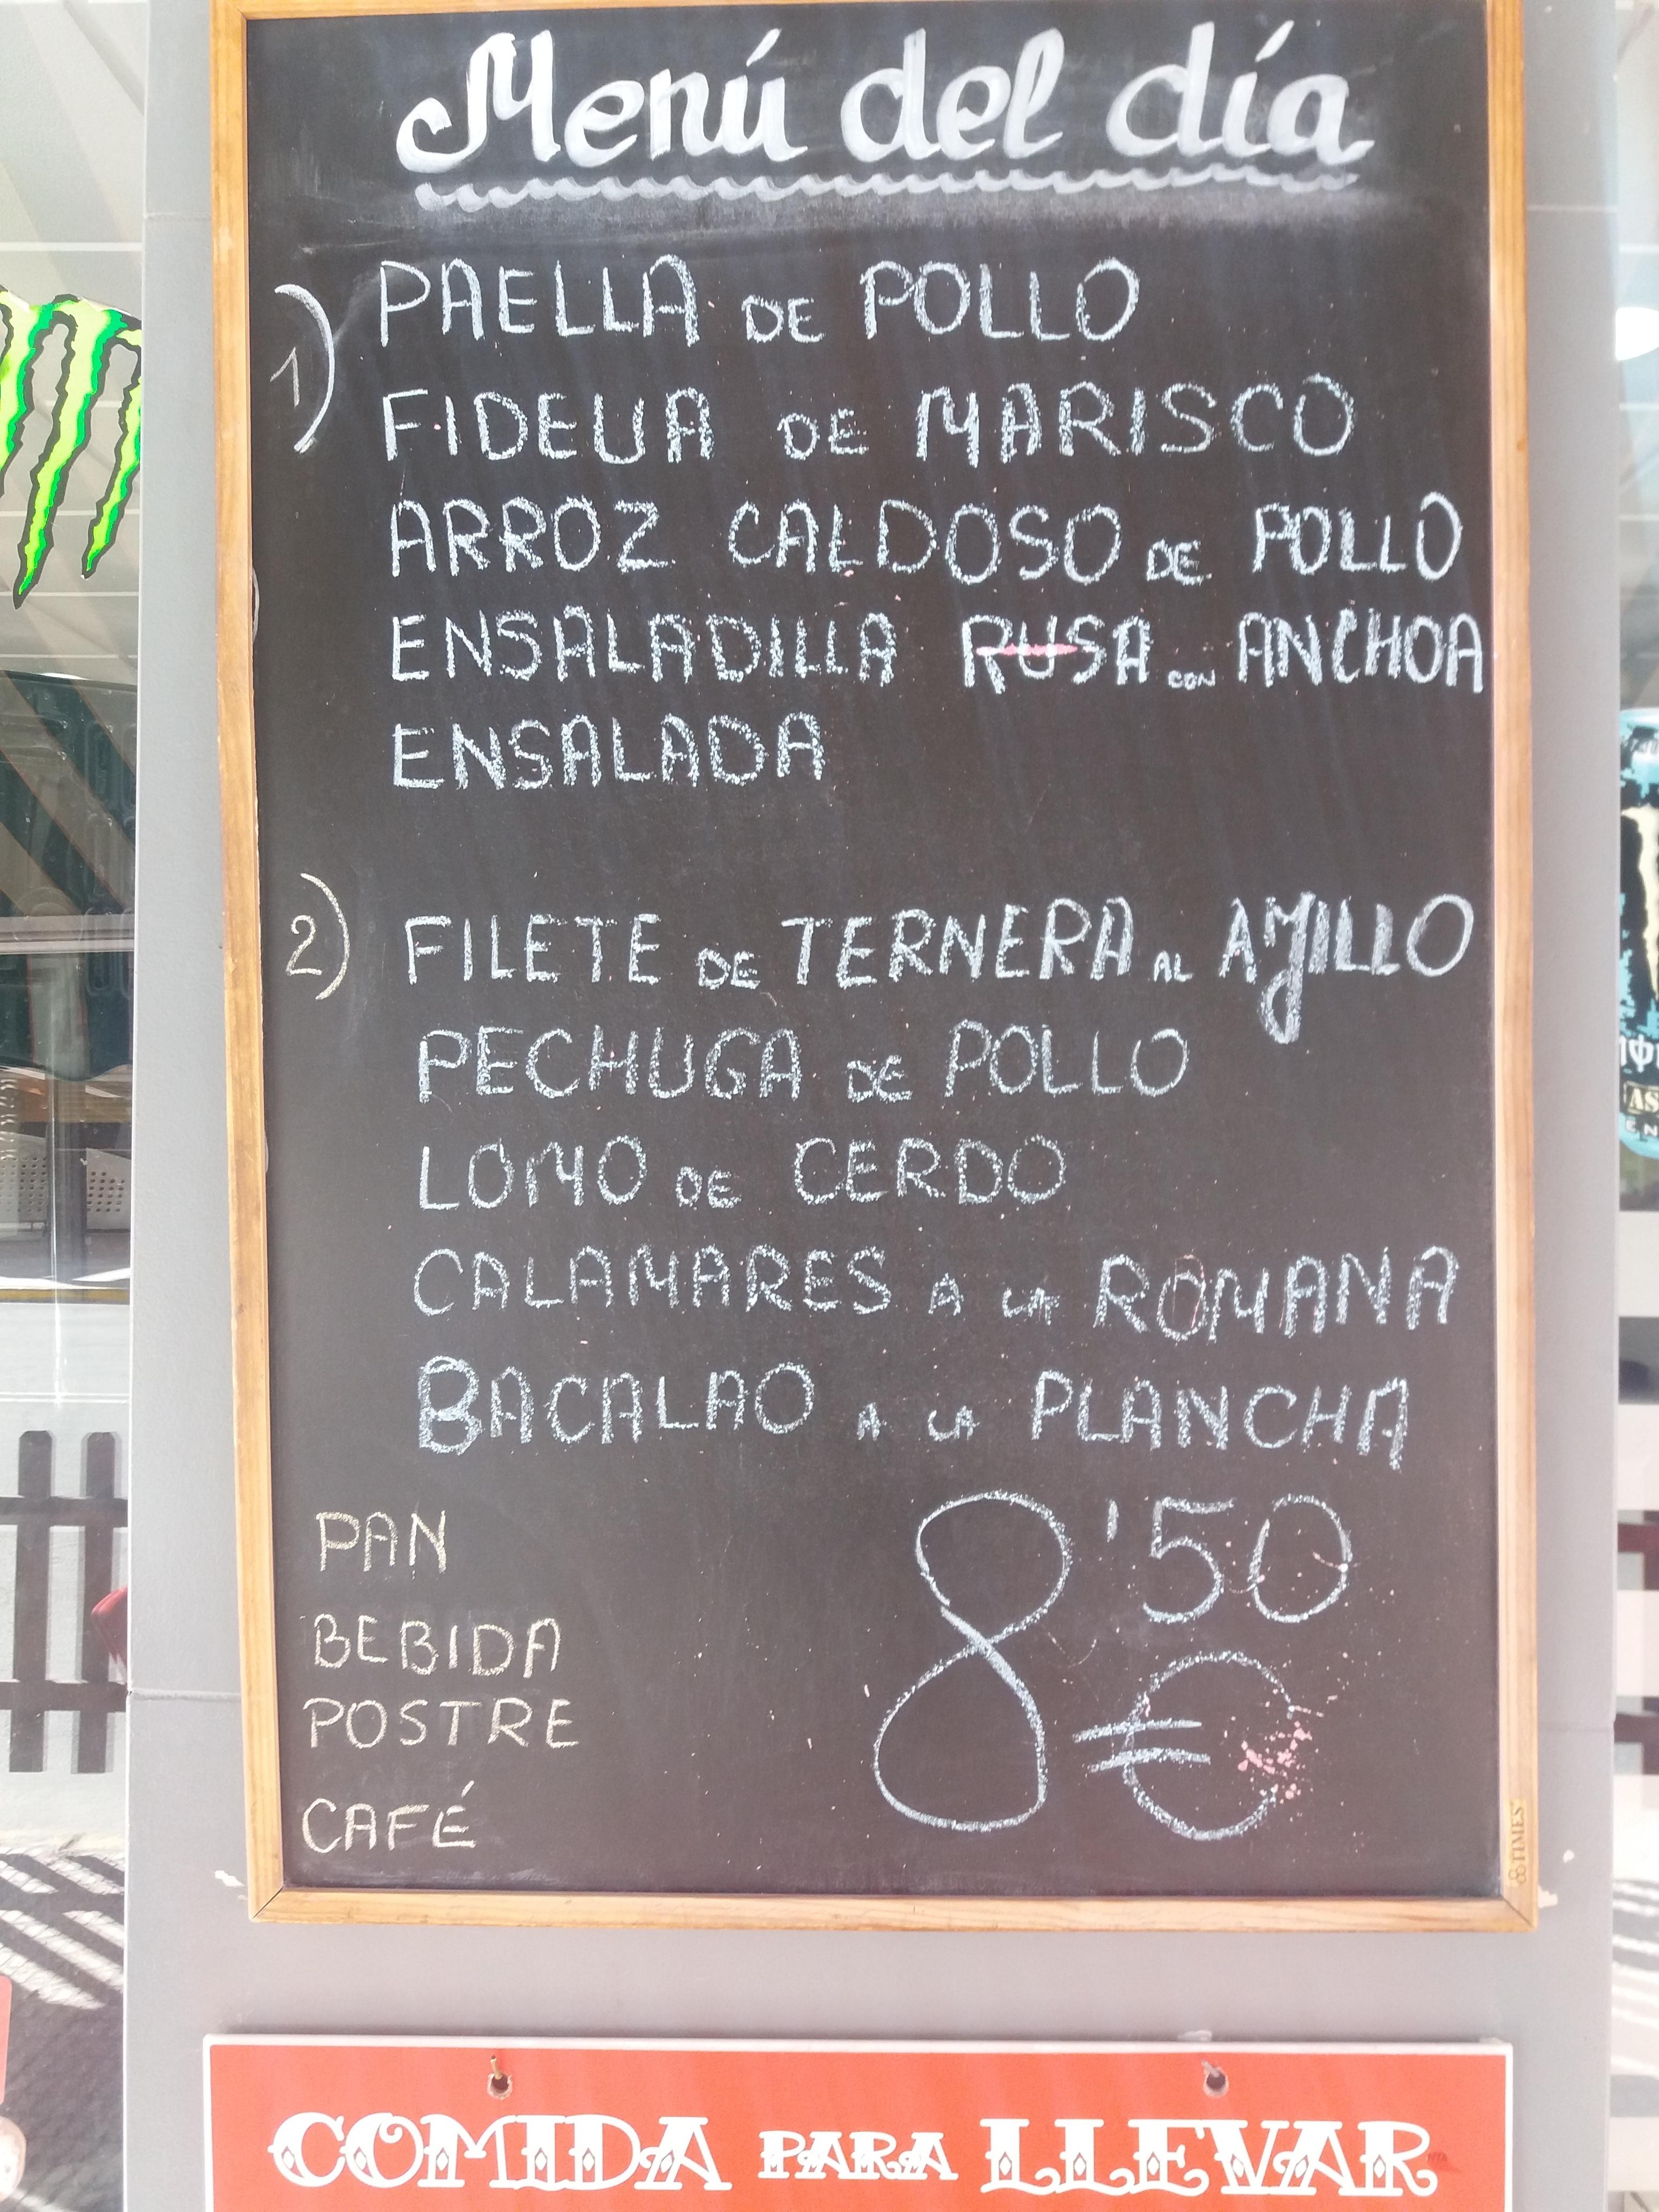 Menú del día
1) PAELLA DE POLLO
FIDEUA DE MARISCO
ARROZ CALDOSO DE POLLO
ENSALADILLA RUSA CON ANCHOA
ENSALADA
2) FILETE DE TERNERA AL AJILLO
PECHUGA DE POLLO
LOMO DE CERDO
CALAMARES A LA ROMANA
BACALAO A LA PLANCHA
PAN
BEBIDA
POSTRE
CAFÉ
8'50
€
TIMES
COMIDA PARA LLEVAR